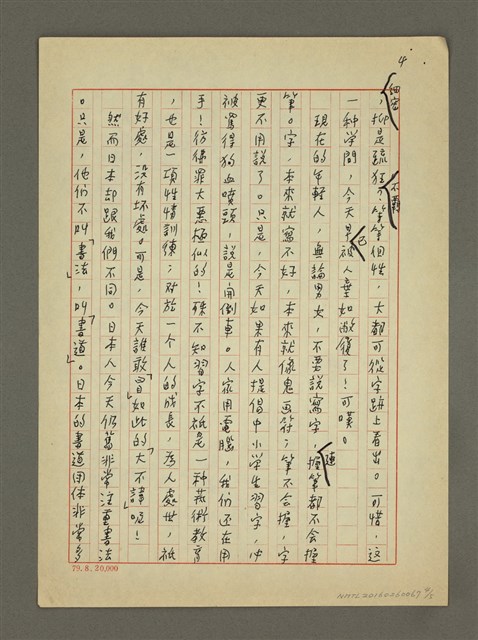 4.
細密
，抑是疏狂、不羈，筆筆個性，大都可從字跡上看出。可惜，這
一種学問，今天早已被人棄如敝屣了！可嘆。
現在的年輕人，無論男女，不要說寫字，連握筆都不会握
筆。字，本來就寫不好，本來就像鬼画符；筆不会握，字
更不用說了。只是，今天如果有人提倡中小学生習字，必
被罵得狗血噴頭，說是开倒車。人家用電腦，我們还在用
手！彷彿罪大惡極似的！殊不知習字不祇是一种艺術教育
，也是一項性情訓練；对於一个人的成長，為人處世，祇
有好處，没有坏處。可是，今天誰敢「冒如此的大不諱」呢！
然而日本却跟我們不同。日本人今天仍舊非常注重書法
。只是，他們不叫「書法」，叫「書道」。日本的書道团体非常多
79.8.20,000
NMTL20160260067 4/5